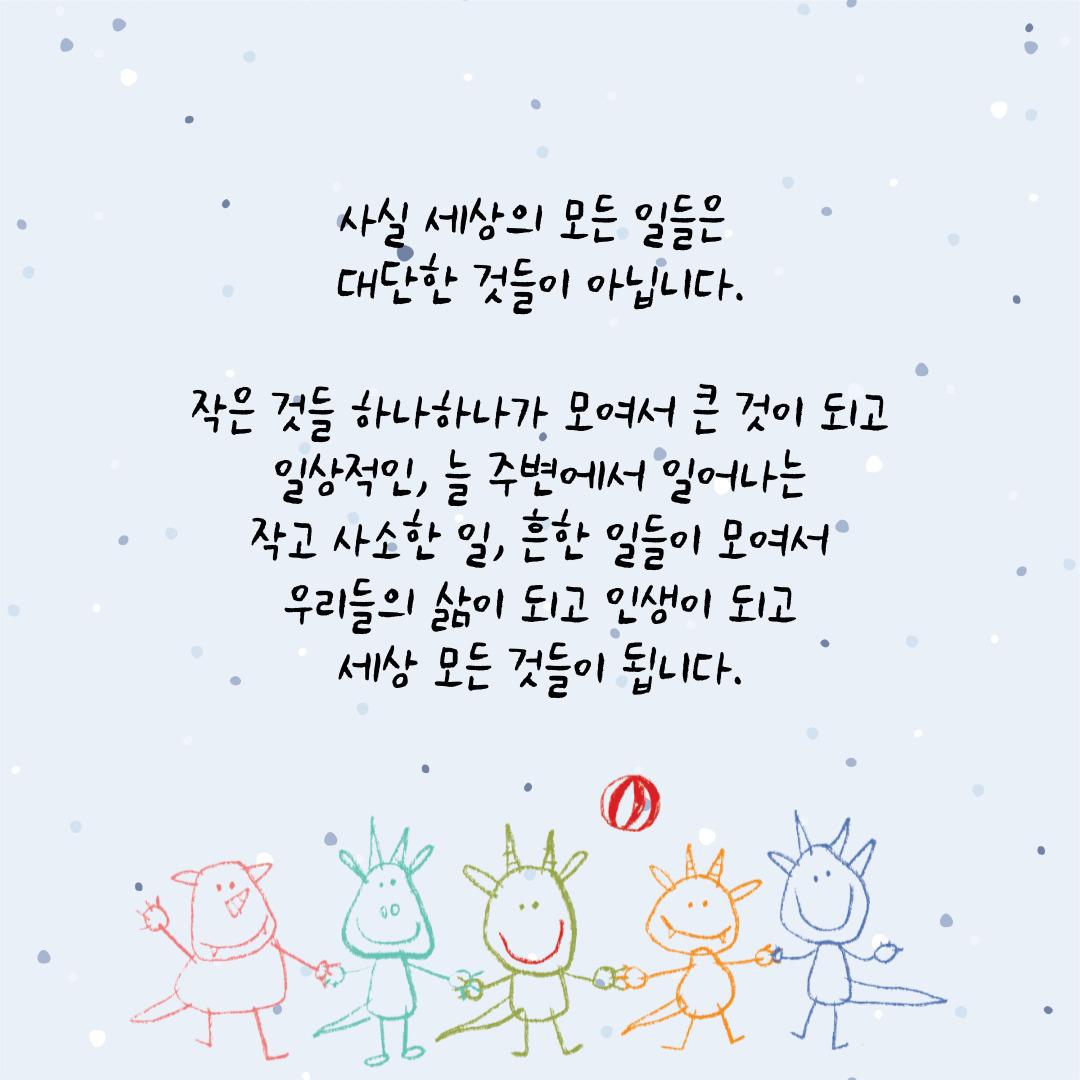 사실 세상의 모든 일들은
대단한 것들이 아닙니다.
작은 것들 하나하나가 모여서 큰 것이 되고
일상적인, 늘 주변에서 일어나는
작고 사소한 일, 흔한 일들이 모여서
우리들의 삶이 되고 인생이 되고
세상 모든 것들이 됩니다.